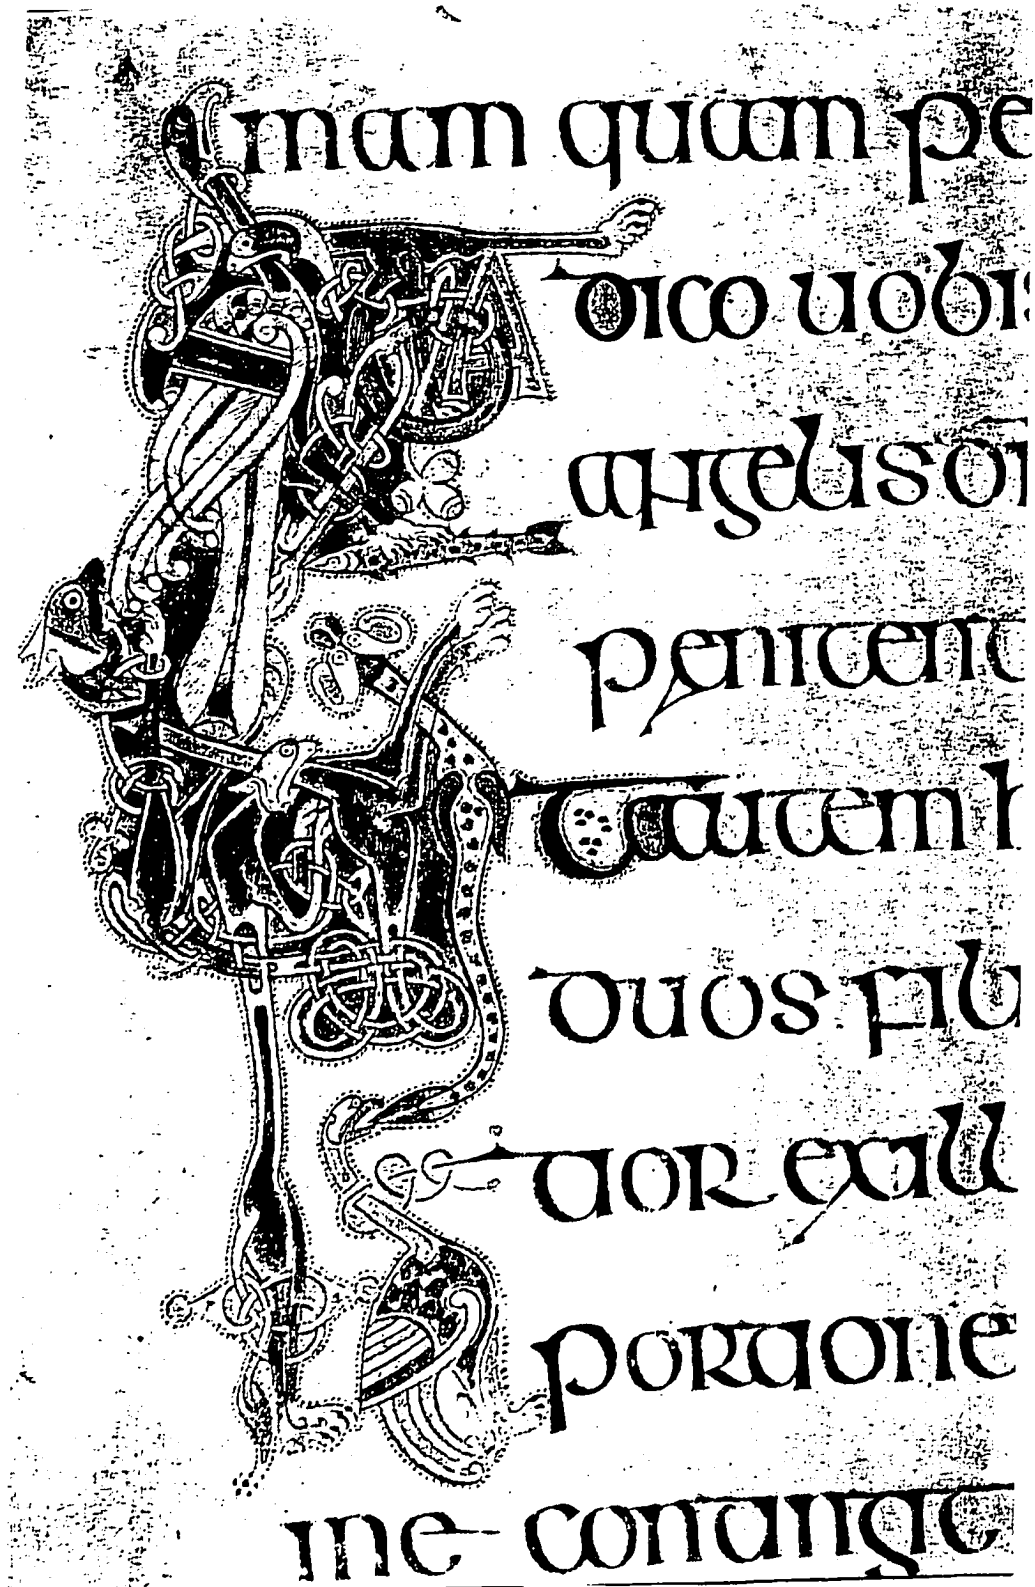 mam quam pe
dico uobis
angelis di
penitent
t autem h
duos fili
tior ex ill
portione
me contingit